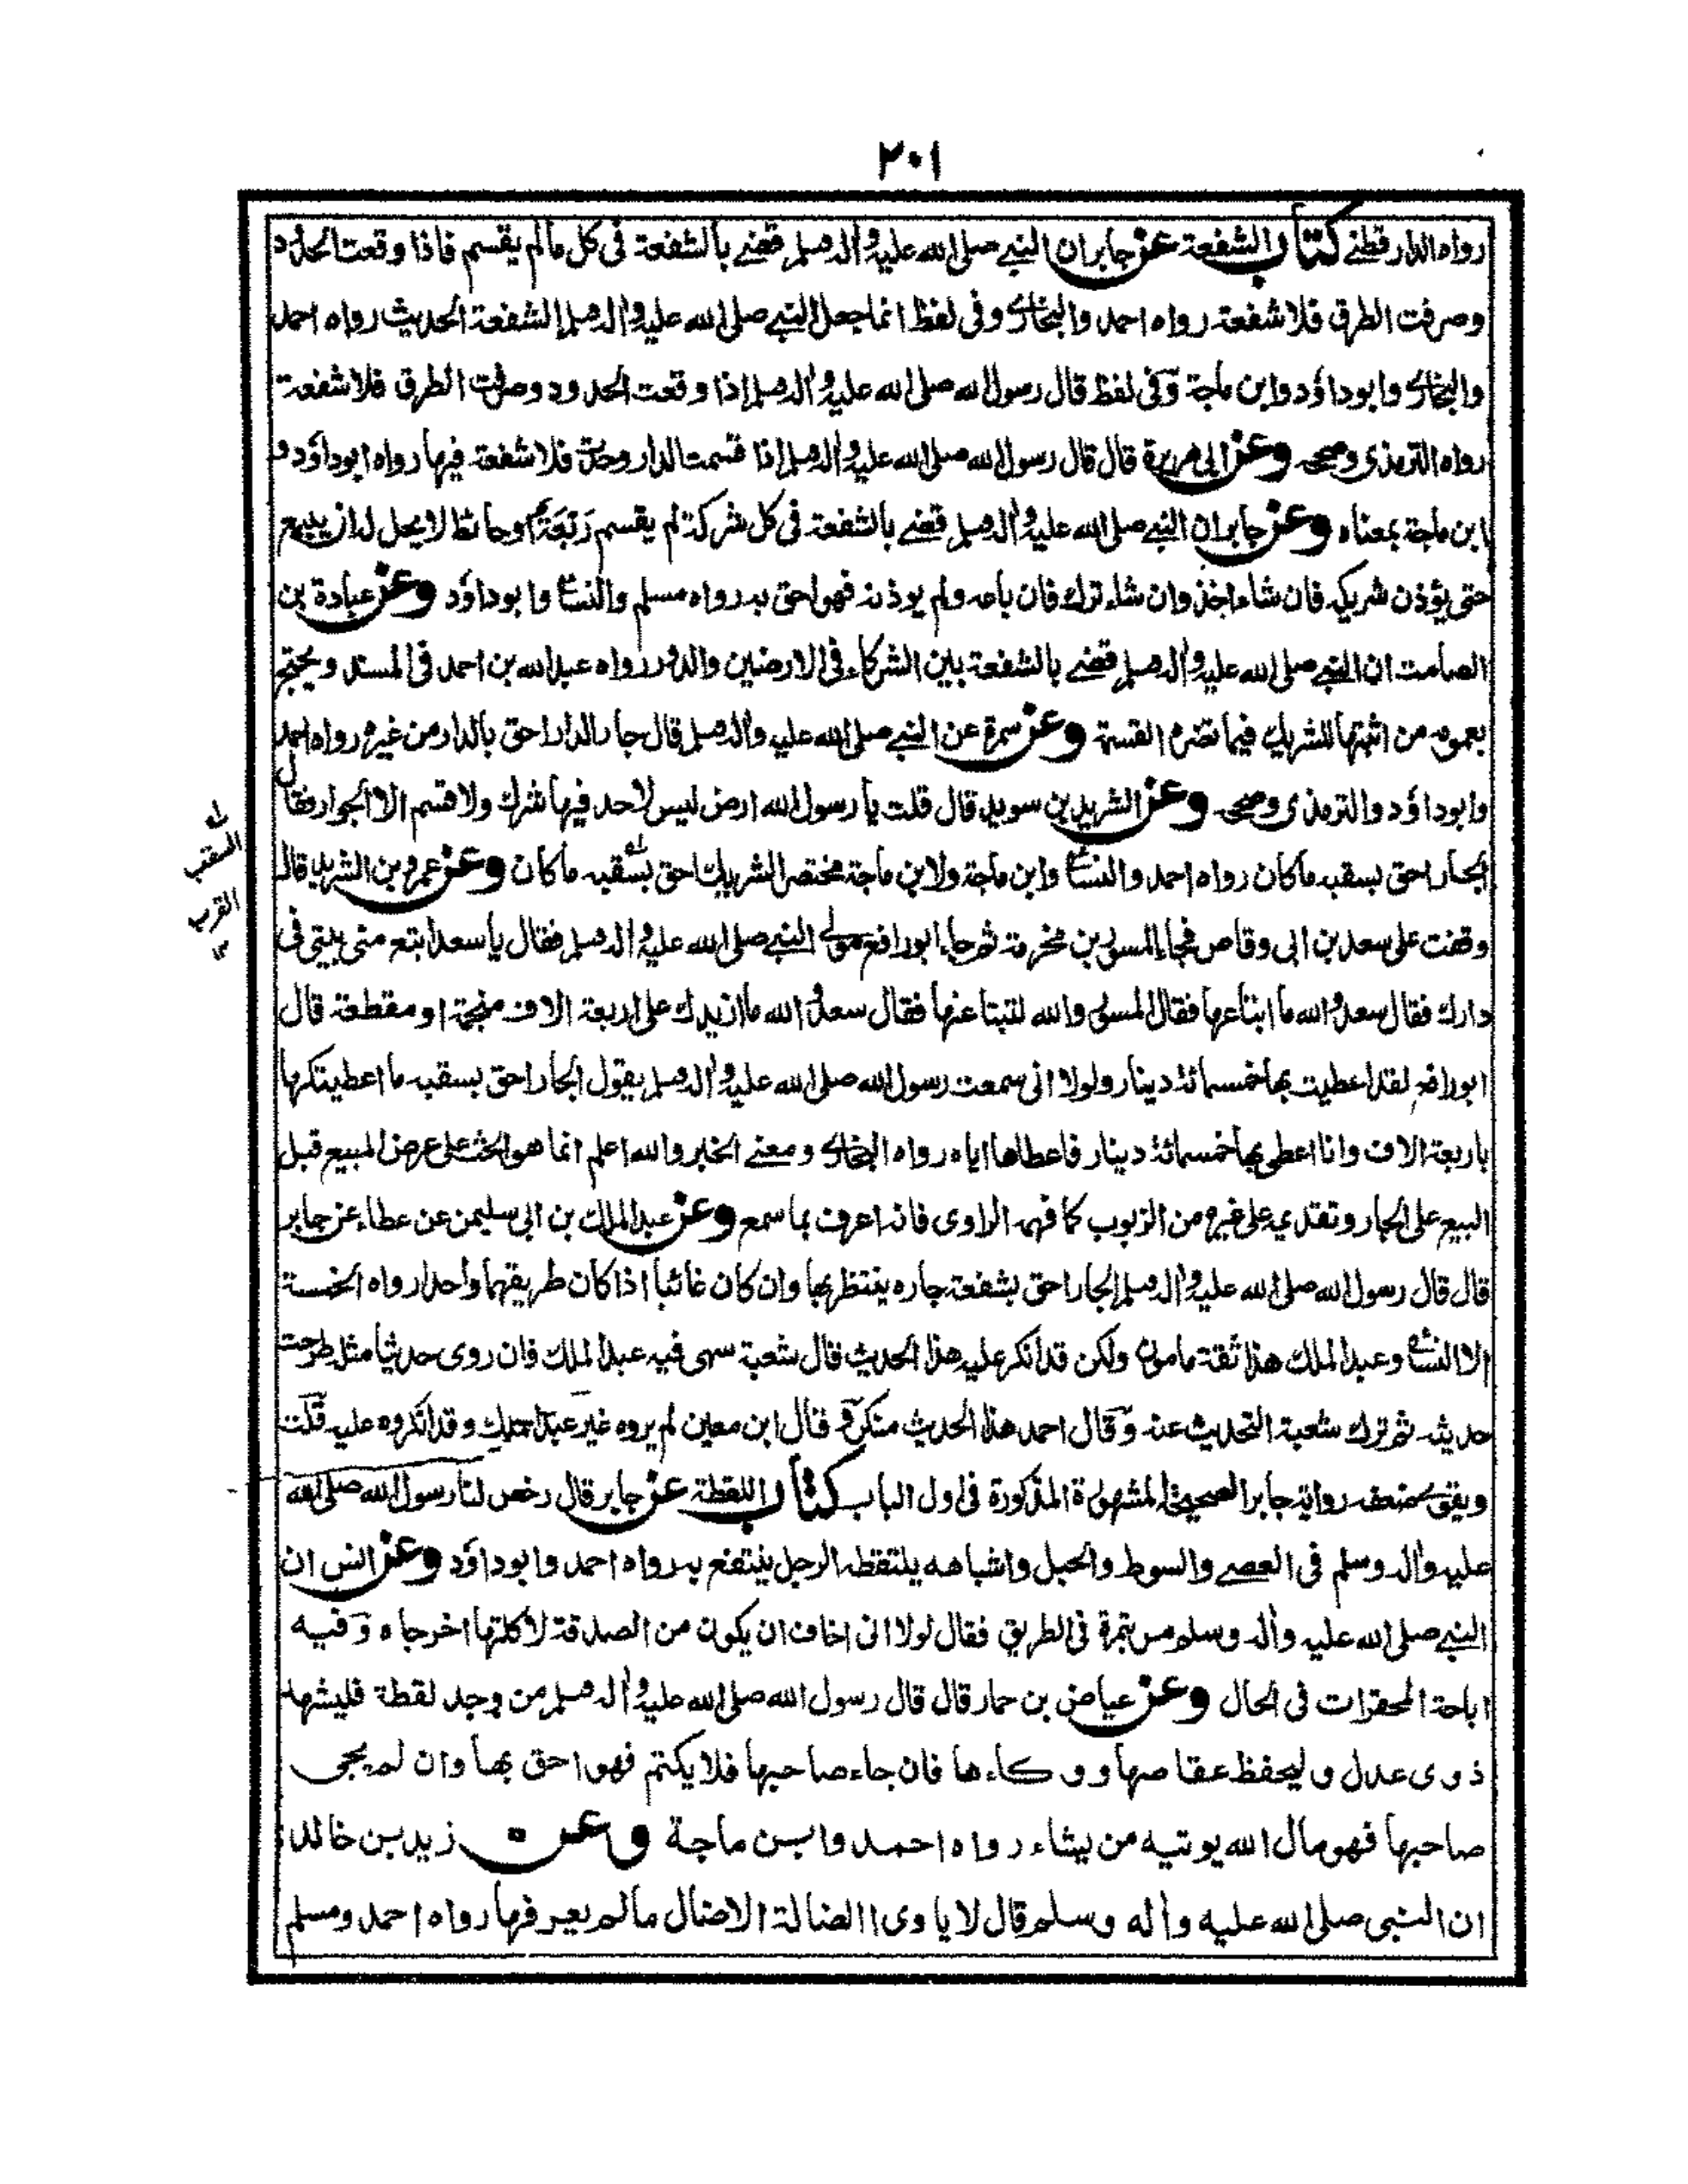 ٢٠١
رواه الدارقطنے كتاب الشفعة عن جابر ان النبے صلى الله عليه واله وسلم قضے بالشفعة فى كل مالم يقسم فاذا وقعت الحدود
وصرفت الطرق فلا شفعة رواه احمد والبخارى وفى لفظ انما جعل النبے صلى الله عليه واله وسلم الشفعة الحديث رواه احمد
والبخارى وابوداؤد وابن ماجة وفى لفظ قال رسول الله صلى الله عليه واله وسلم اذا وقعت الحدود وصرفت الطرق فلا شفعة
رواه الترمذى وصححه وعن ابى هريرة قال قال رسول الله صلى الله عليه واله وسلم اذا قسمت الدار وحدت فلا شفعة فيها رواه ابوداؤد و
ابن ماجة بمعناه وعن جابر ان النبے صلى الله عليه واله وسلم قضے بالشفعة فى كل شركة لم يقسم رَبْعَةٍ اوحائط لا يحل له ان يبيع
حتى يؤذن شريكه فان شاء اخذ وان شاء ترك فان باعه ولم يوذنه فهو احق به رواه مسلم والنسائے وابوداؤد وعن عبادة بن
الصامت ان النبے صلى الله عليه واله وسلم قضے بالشفعة بين الشركاء فى الارضين والدور رواه عبد الله بن احمد فى المسند ويحتج
بعمومه من اثبتها للشريك فيما تضره القسمة وعن سمرة عن النبے صلى الله عليه واله وسلم قال جار الدار احق بالدار من غيره رواه احمد
وابوداؤد والترمذى وصححه وعن الشريد بن سويد قال قلت يا رسول الله ارض ليس لاحد فيها شرك ولا قسم الا الجوار فقال
الجار احق بسقبه ما كان رواه احمد والنسائے وابن ماجة ولابن ماجة مختصر الشريك احق بسقبه ما كان وعن عمرو بن الشريد قال
له السقب القرب ١٢
وقفت على سعد بن ابى وقاص فجاء المسور بن مخرمة ثم جاء ابورافع مولے النبے صلى الله عليه واله وسلم فقال يا سعد ابتع منى بيتى فى
دارك فقال سعد والله ما ابتاعها فقال المسور والله لتبتاعنها فقال سعد والله ما ازيدك على اربعة الاف منجمة او مقطعة قال
ابورافع لقد اعطيت بها خمسمائة دينار ولولا انى سمعت رسول الله صلى الله عليه واله وسلم يقول الجار احق بسقبه ما اعطيتكها
باربعة الاف وانا اعطى بها خمسمائة دينار فاعطاها اياه رواه البخارى ومعنے الخبر والله اعلم انما هو الحث على عرض المبيع قبل
البيع على الجار وتقديمه على غيره من الزبون كما فهمه الراوى فانه اعرف بما سمع وعن عبد الملك بن ابى سليمن عن عطاء عن جابر
قال قال رسول الله صلى الله عليه واله وسلم الجار احق بشفعة جاره ينتظر بها وان كان غائبا اذا كان طريقهما واحدا رواه الخمسة
الا النسائے وعبد الملك هذا ثقة مامون ولكن قد انكر عليه هذا الحديث قال شعبة سهى فيه عبد الملك فان روى حديثا مثله طرحت
حديثه ثم ترك شعبة التحديث عنه وقال احمد هذا الحديث منكر و قال ابن معين لم يروه غير عبد الملك وقد انكروه عليه قلت
ويقوى ضعفه رواية جابر الصحيحة المشهورة المذكورة فى اول الباب كتاب اللقطة عن جابر قال رخص لنا رسول الله صلى الله
عليه واله وسلم فى العصے والسوط والحبل واشباهه يلتقطه الرجل ينتفع به رواه احمد وابوداؤد وعن انس ان
النبے صلى الله عليه واله وسلم مر بتمرة فى الطريق فقال لولا انى اخاف ان يكون من الصدقة لاكلتها اخرجاه وفيه
اباحة المحقرات فى الحال وعن عياض بن حمار قال قال رسول الله صلى الله عليه واله وسلم من وجد لقطة فليشهد
ذوى عدل وليحفظ عقاصها ووكاءها فان جاء صاحبها فلا يكتم فهو احق بها وان لم يجى
صاحبها فهو مال الله يوتيه من يشاء رواه احمد وابن ماجة وعن زيد بن خالد
ان النبى صلى الله عليه واله وسلم قال لا ياوى االضالة الاضال مالم يعرفها رواه احمد ومسلم